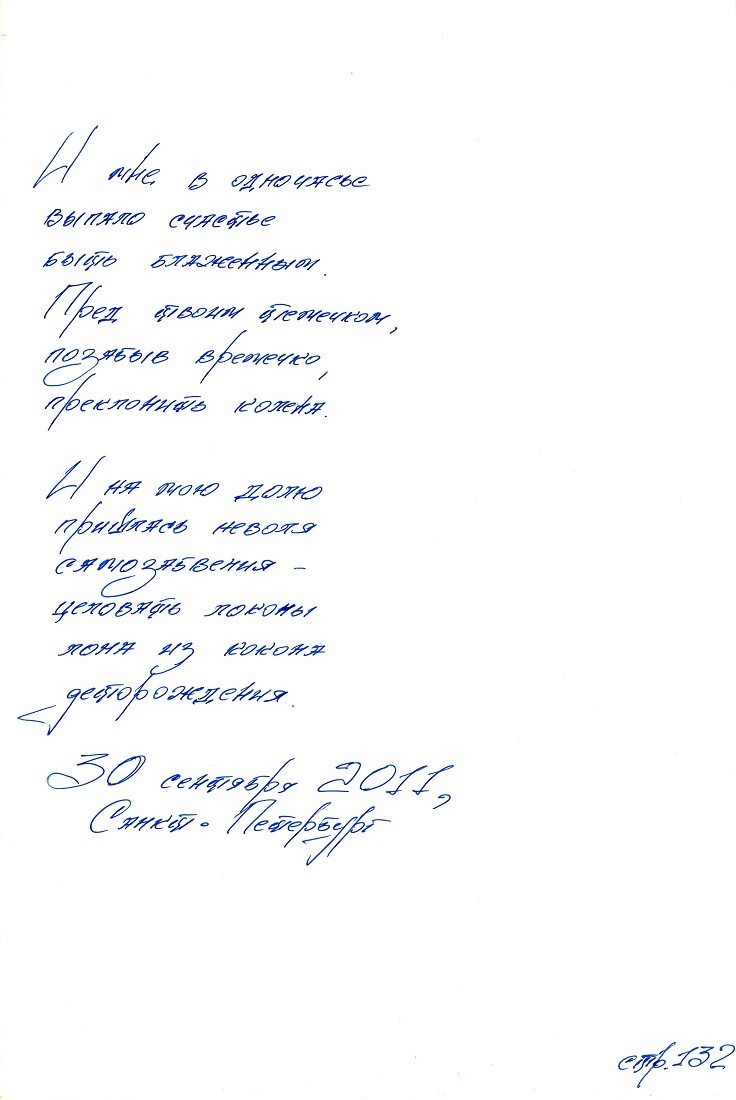 И мне в одночасье
выпало счастье
быть блаженным.
Пред твоим темечком,
позабыв времечко,
преклонить колена.
И на мою долю
пришлась неволя
самозабвения –
целовать локоны
лона из кокона
деторождения.
30 сентября 2011,
Санкт-Петербург
стр. 132